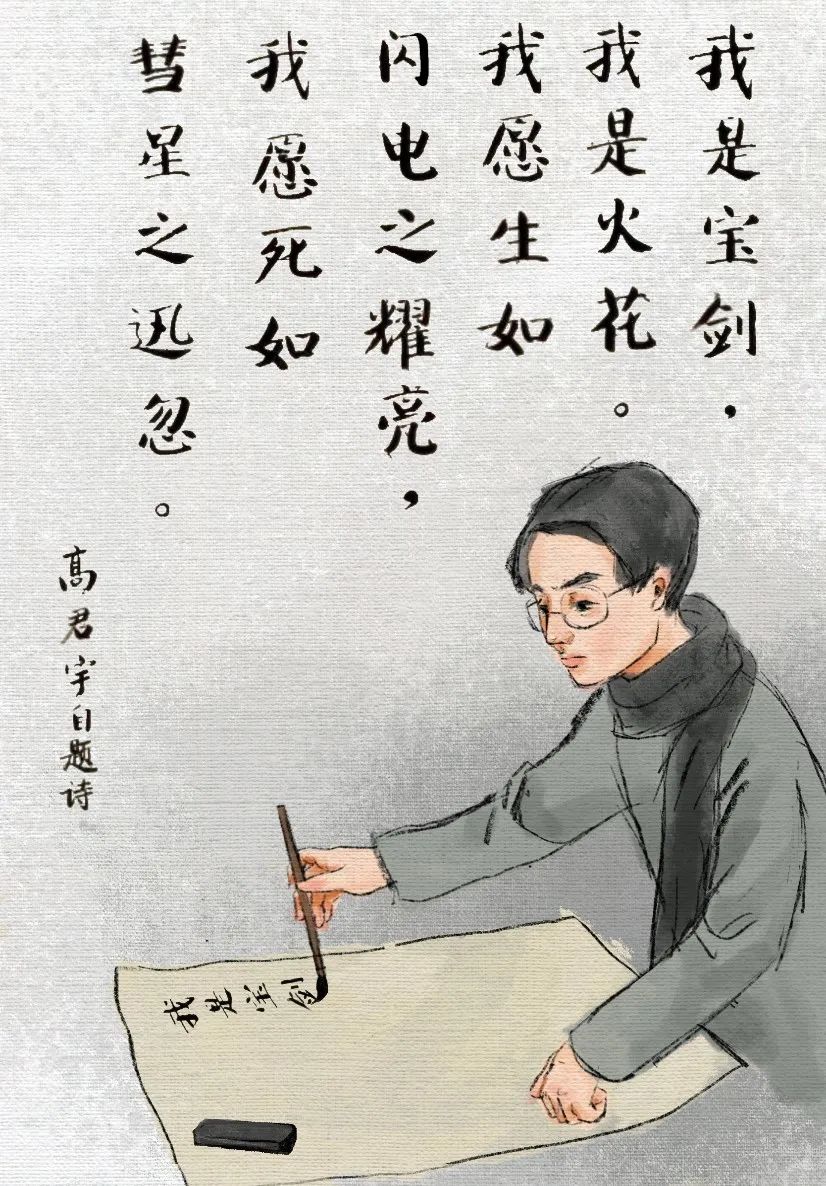 我是宝剑，
我是火花。
我愿生如
闪电之耀亮，
我愿死如
彗星之迅忽。
高君宇自题诗
我是宝剑